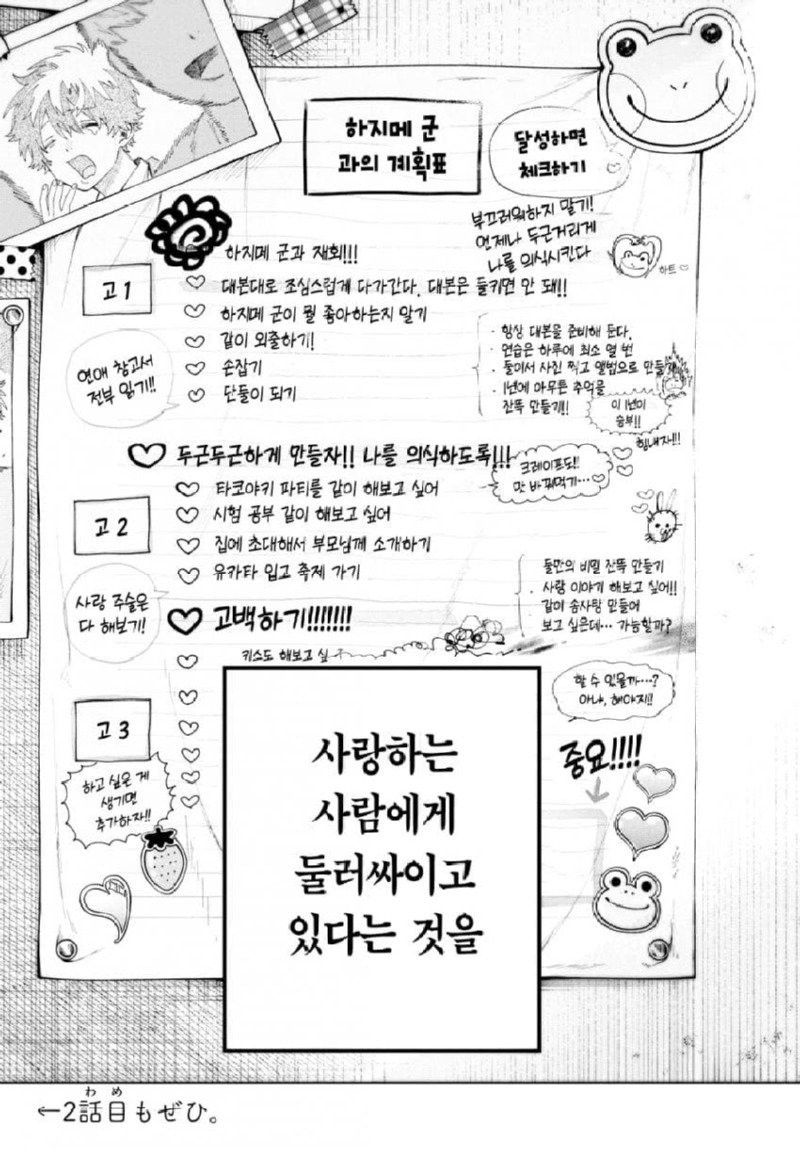 하지메 군
과의 계획표
달성하면
체크하기
부끄러워하지 말기!
언제나 두근거리게
나를 의식시킨다
하트
고 1
하지메 군과 재회!!!
대본대로 조심스럽게 다가간다. 대본은 들키면 안 돼!!
하지메 군이 뭘 좋아하는지 알기
같이 외출하기!
손잡기
단둘이 되기
연애 참고서
전부 읽기!!
· 항상 대본을 준비해 둔다.
· 연습은 하루에 최소 열 번
· 둘이서 사진 찍고 앨범으로 만들기
· 1년에 아무튼 추억을
잔뜩 만들기!!
이 1년이
승부!!
힘내자!!!
두근두근하게 만들자!! 나를 의식하도록!!!
크레이프도!!
맛 바꿔먹기…
고 2
타코야키 파티를 같이 해보고 싶어
시험 공부 같이 해보고 싶어
집에 초대해서 부모님께 소개하기
유카타 입고 축제 가기
사랑 주술은
다 해보기!
둘만의 비밀 잔뜩 만들기
· 사랑 이야기 해보고 싶어!!
같이 솜사탕 만들어
보고 싶은데… 가능할까?
고백하기!!!!!!!
키스도 해보고 싶
할 수 있을까…?
아냐, 해야지!!
고 3
하고 싶은 게
생기면
추가하자!!
중요!!!!
사랑하는
사람에게
둘러싸이고
있다는 것을
←2話目もぜひ。
わめ